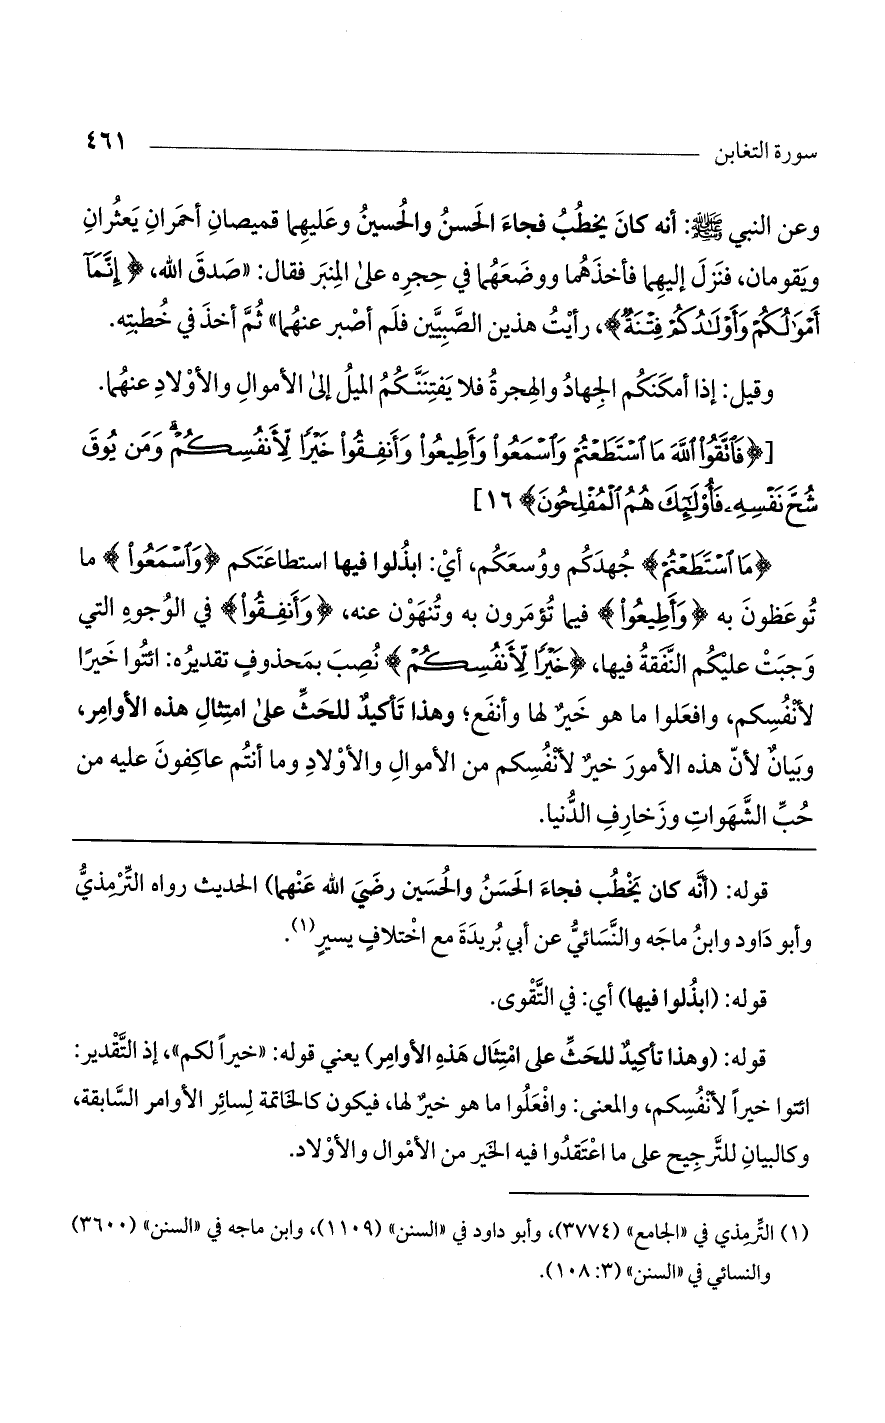 سورة التغابن ٤٦١
وعن النبي ﷺ: أنه كانَ يخطُبُ فجاءَ الحَسنُ والحُسينُ وعَليهِما قميصانِ أحمَرانِ يَعثُرانِ
ويَقومان، فنَزلَ إليهِما فأخذَهُما ووضَعَهُما في حِجرِه علىٰ المِنبَر فقال: «صَدقَ الله، ﴿إِنَّمَآ
أَمْوَٰلُكُمْ وَأَوْلَـٰدُكُمْ فِتْنَةٌ﴾، رأيْتُ هذين الصَّبيَّين فلَم أصْبر عنهُما» ثُمَّ أخذَ في خُطبتِه.
وقيل: إذا أمكَنَكُم الجِهادُ والهِجرةُ فلا يَفتِنَنَّكُمُ الميلُ إلىٰ الأموالِ والأوْلادِ عنهُما.
[﴿فَٱتَّقُوا۟ ٱللَّهَ مَا ٱسْتَطَعْتُمْ وَٱسْمَعُوا۟ وَأَطِيعُوا۟ وَأَنفِقُوا۟ خَيْرًا لِّأَنفُسِكُمْ ۗ وَمَن يُوقَ
شُحَّ نَفْسِهِۦ فَأُو۟لَـٰٓئِكَ هُمُ ٱلْمُفْلِحُونَ﴾ ١٦]
﴿مَا ٱسْتَطَعْتُمْ﴾ جُهدَكُم ووُسعَكُم، أيْ: ابذُلوا فيها استطاعَتَكم ﴿وَٱسْمَعُوا۟﴾ ما
تُوعَظونَ به ﴿وَأَطِيعُوا۟﴾ فيما تُؤمَرون به وتُنهَوْن عنه، ﴿وَأَنفِقُوا۟﴾ في الوُجوهِ التي
وَجبَتْ عليْكُم النَّفَقةُ فيها، ﴿خَيْرًا لِّأَنفُسِكُمْ﴾ نُصِبَ بمَحذوفٍ تقديرُه: ائتُوا خَيرًا
لأنْفُسِكم، وافعَلوا ما هو خَيرٌ لها وأنفَع؛ وهذا تَأكيدٌ للحَثِّ علىٰ امتِثالِ هذه الأوامِر،
وبَيانٌ لأنّ هذه الأمورَ خيرٌ لأنْفُسِكم من الأموالِ والأوْلادِ وما أنتُم عاكِفونَ عليه من
حُبِّ الشَّهَواتِ وزَخارِفِ الدُّنيا.
قوله: (أنَّه كان يَخْطُب فجاءَ الحَسَنُ والحُسَين رضَيَ الله عَنْهما) الحديث رواه التِّرْمِذيُّ
وأبو دَاود وابنُ ماجَه والنَّسَائيُّ عن أبي بُريدَةَ مع اخْتلافٍ يسيرٍ(١).
قوله: (ابذُلوا فيها) أي: في التَّقْوى.
قوله: (وهذا تأكِيدٌ للحَثِّ على امْتِثَال هَذهِ الأوامِر) يعني قوله: «خيراً لكم»، إذ التَّقْدير:
ائتوا خيراً لأنْفُسِكم، والمعنى: وافْعَلُوا ما هو خيرٌ لها، فيكون كالخَاتمة لِسائِر الأوامر السَّابقة،
وكالبيانِ للتَّرجِيح على ما اعْتَقدُوا فيه الخَير من الأمْوال والأوْلاد.
(١) التِّرمِذي في «الجامع» (٣٧٧٤)، وأبو داود في «السنن» (١١٠٩)، وابن ماجه في «السنن» (٣٦٠٠)
والنسائي في «السنن» (٣: ١٠٨).